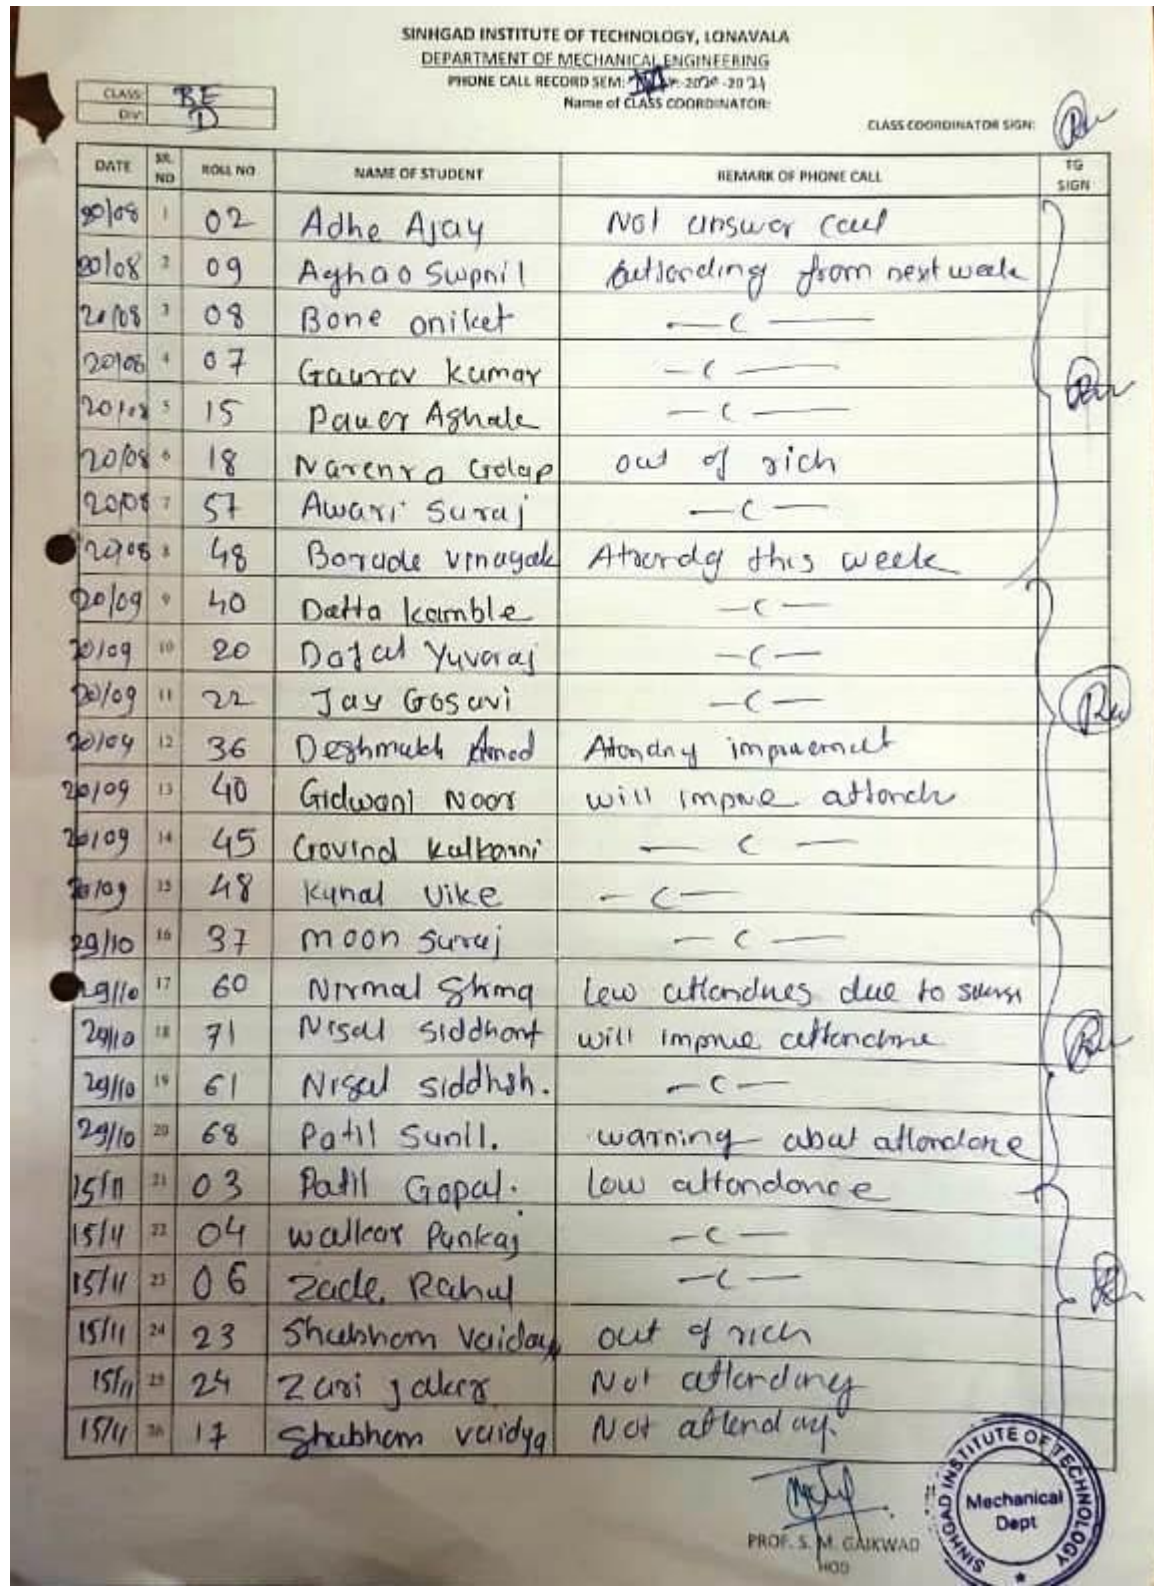 SINHGAD INSTITUTE OF TECHNOLOGY, LONAVALA
DEPARTMENT OF MECHANICAL ENGINEERING
PHONE CALL RECORD SEM: 2020-2021
Name of CLASS COORDINATOR:
CLASS: BE
DIV: D
CLASS COORDINATOR SIGN:
DATE SR. NO ROLL NO NAME OF STUDENT REMARK OF PHONE CALL TG SIGN
20/08 1 02 Adhe Ajay Not answer call
20/08 2 09 Aghao Swpnil from next week
20/08 3 08 Bone oniket — c —
20/08 4 07 Gaurav Kumar — c —
20/08 5 15 Pawer Aghale — c —
20/08 6 18 Narenra Golap out of rich
20/08 7 57 Awari Suraj — c —
20/08 8 48 Borude vinayak this week
20/09 9 40 Datta kamble — c —
20/09 10 20 Yuvaraj — c —
20/09 11 22 Jay Gosavi — c —
20/09 12 36 Deshmukh
20/09 13 40 Gidwani Noor will
20/09 14 45 Govind kulkarni — c —
20/09 15 48 Kunal Vike — c —
29/10 16 37 moon suraj — c —
29/10 17 60 Nirmal due to
29/10 18 71 Nisal siddhant will
29/10 19 61 Nisal — c —
29/10 20 68 Patil Sunil. warning
15/11 21 03 Patil Gopal. Low attendance
15/11 22 04 walkar Pankaj — c —
15/11 23 06 Zade Rahul — c —
15/11 24 23 Shubham out of rich
15/11 25 24 Zari Not attending
15/11 26 17 Shubham vaidya Not
PROF. S. M. GAIKWAD
HOD
SINHGAD INSTITUTE OF TECHNOLOGY
Mechanical
Dept